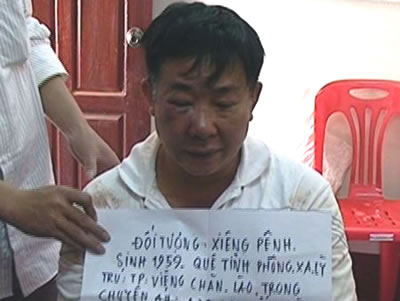 ĐỐI TƯỢNG: XIÊNG PÊNH.
SINH 1959. QUÊ TỈNH PHÔNG, XA, LỲ
TRÚ: TP: VIÊNG CHĂN. LÀO, TRONG
CHUYÊN ÁN: